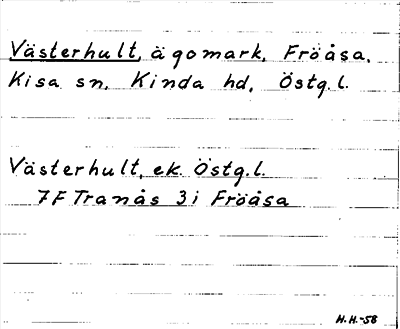 Västerhult, ägomark, Fröåsa,
Kisa sn, Kinda hd, Östg.l.
Västerhult, ek. Östg.l.
7F Tranås 3i Fröåsa
H.H.-58